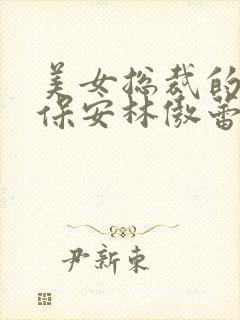 美女总裁的
保安林傲蕾
尹新东